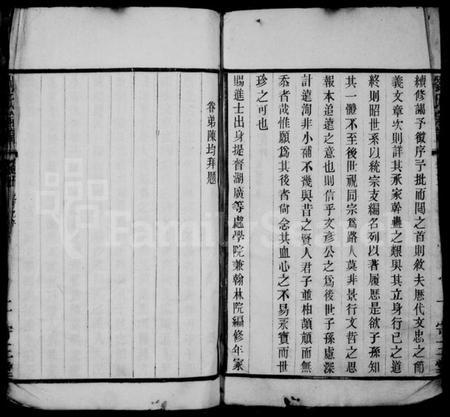 續修譜予徵序予批而閱之首則敘夫歷代文忠之節
義文章次則詳其承家幹蠱之類與其立身行己之道
終則昭世系以統宗支編名列以著履歷是欲子孫知
其一體不至後世視同宗為路人莫非景行文哲之思
報本追遠之意也則信乎文彥公之為後世子孫慮深
計遠洵非小補不幾與昔之賢人君子並相頡頏而無
忝者哉惟願為其後者尚念其血心之不易永寶而世
珍之可也
賜進士出身提督湖廣等處學院兼翰林院編修年家
眷弟陳均拜題